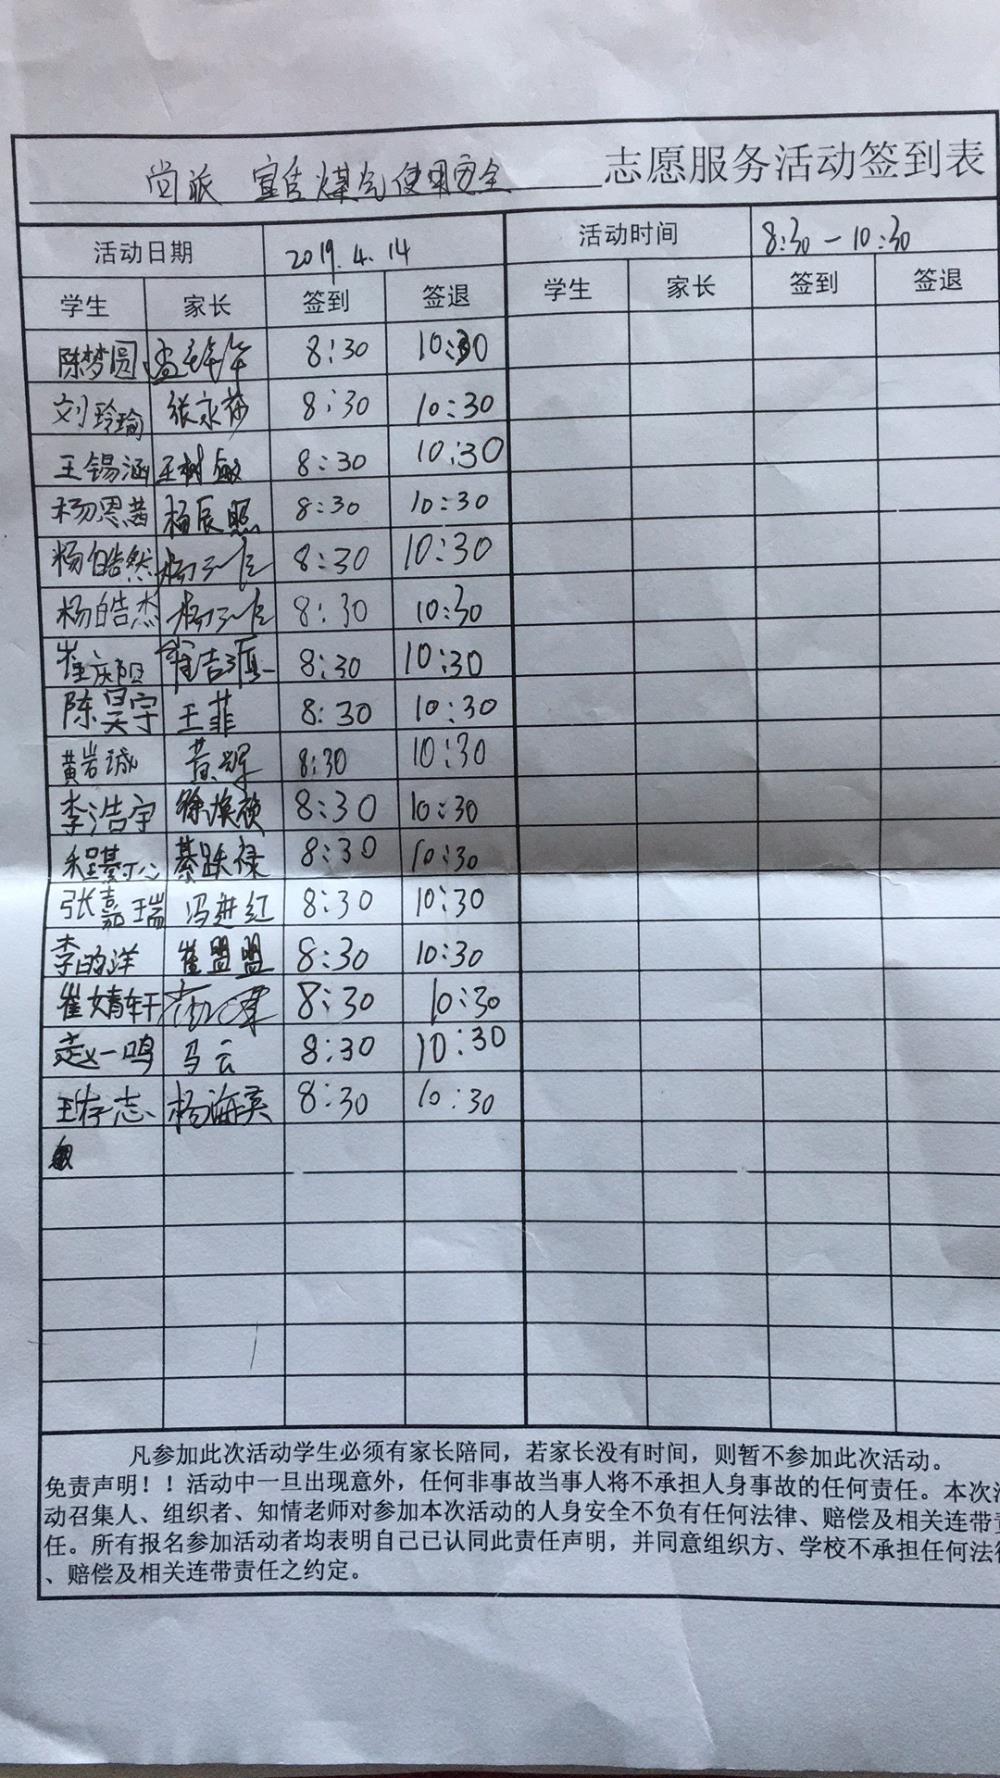 尚派 宣告煤气使用安全 志愿服务活动签到表
活动日期 2019.4.14 活动时间 8:30-10:30
学生 家长 签到 签退 学生 家长 签到 签退
陈梦圆 8:30 10:30
刘玲瑜 张永莎 8:30 10:30
王锡涵 王树敏 8:30 10:30
杨恩茜 杨辰照 8:30 10:30
杨皓然 8:30 10:30
杨皓杰 8:30 10:30
崔庆阳 8:30 10:30
陈昊宇 王菲 8:30 10:30
黄岩诚 黄辉 8:30 10:30
李浩宇 徐焕祯 8:30 10:30
綦跃禄 8:30 10:30
张嘉瑞 冯进红 8:30 10:30
李昀洋 崔盟盟 8:30 10:30
崔婧轩 8:30 10:30
赵一鸣 马云 8:30 10:30
王存志 杨海英 8:30 10:30
凡参加此次活动学生必须有家长陪同，若家长没有时间，则暂不参加此次活动。
免责声明！！活动中一旦出现意外，任何非事故当事人将不承担人身事故的任何责任。本次
动召集人、组织者、知情老师对参加本次活动的人身安全不负有任何法律、赔偿及相关连带
任。所有报名参加活动者均表明自己已认同此责任声明，并同意组织方、学校不承担任何法
、赔偿及相关连带责任之约定。